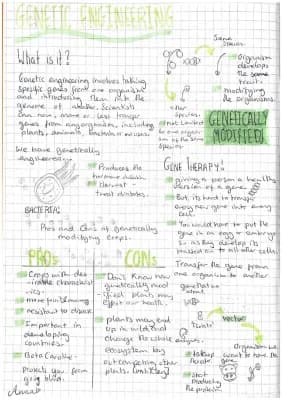 GENETIC ENGINEERING
What is it?
Genetic engineering involves taking
specific genes from one organism
and introducing them into the
genome of another. Scientists
can now, more or less transfer
genes from any organism, including
plants, animals, bacteria or viruses.
We have genetically
engineering
Produces the
hormone insulin
Harvest -
treat diabetes.
BACTERIA:
Pros and Cons of genetically
modifying crops.
PROS
Crops with des
irable characterist
ics.
more fun farming
resistant to disease
Important in
developing
countries.
Beta Carotine -
Protects you from
going blind.
CONS
Don't know how
genetically modi
fied plants may
effect our health.
plants may end
up in wild and
change the whole
ecosystem by
outcompeting other
plants
Same
Species.
Organism
develops
the same
trait.
modifying
the organisms.
other
Species.
Not Limited
to one organi-
sm of the same
Species.
GENETICALLY
MODIFIED!
GENE THERAPY:
giving a person a healthy
version of a gene.
But, its hard to transf-
er new gene into every
cell.
You would have to put the
gene in an egg or embryo
so as they develop its
passed on to all other cells.
Transfer the gene from
one organism to another
vector
Organism we
want to have the
gene
takeup
the gene
start
producing
the protein.